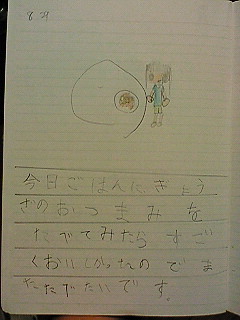 8 29
今日ごはんにぎょう
ざのおつまみを
たべてみたら すご
くおいしかったので ま
たたべたいです。